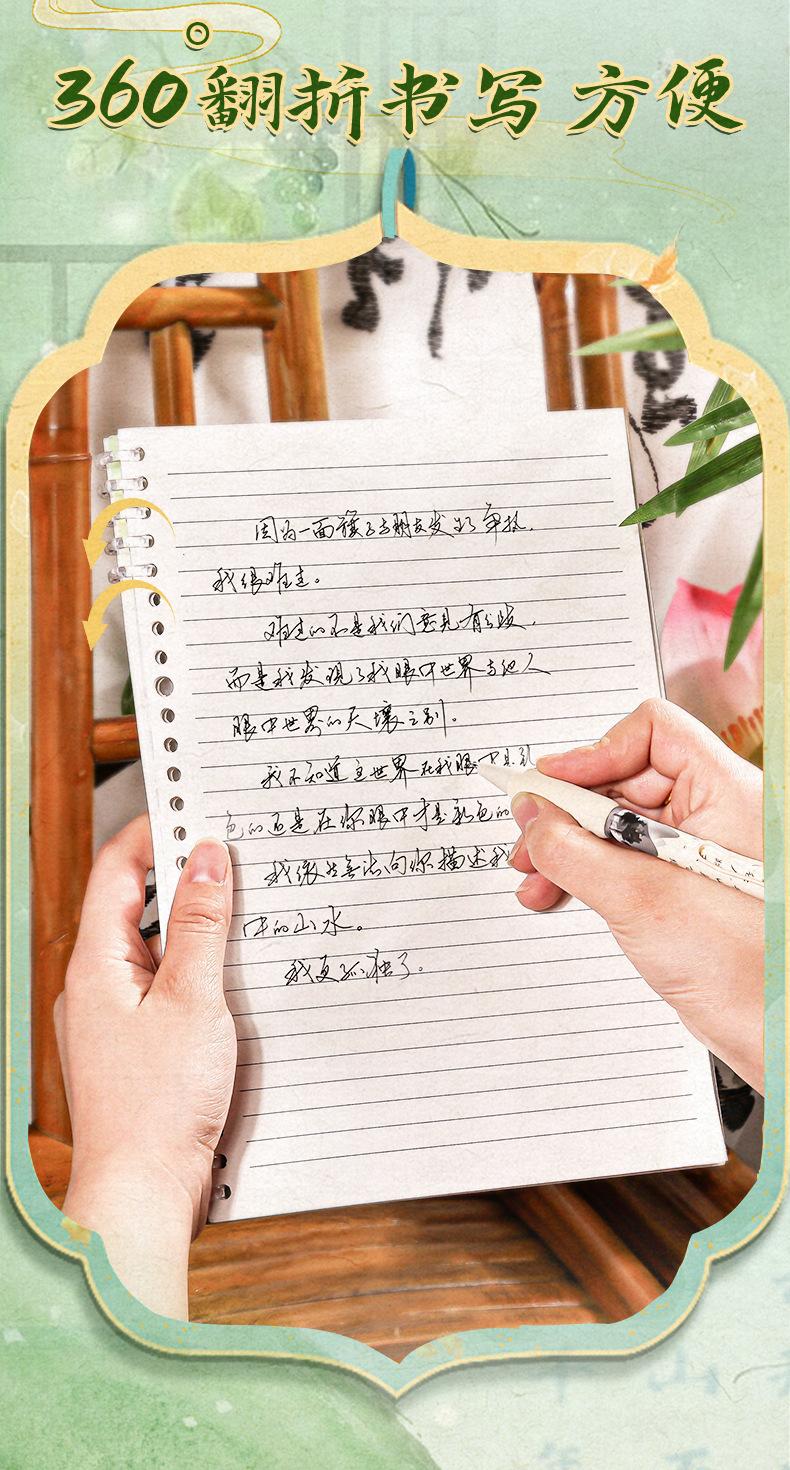 360翻折书写 方便
因为一面旗子与朋友发生了争执，
我很难过。
难过的不是我们意见有分歧，
而是我发现了我眼中世界与他人
眼中世界的天壤之别。
我不知道这世界在我眼中是彩
色的还是在你眼中才是彩色的
我根本无法向你描述我
中的山水。
我更孤独了。